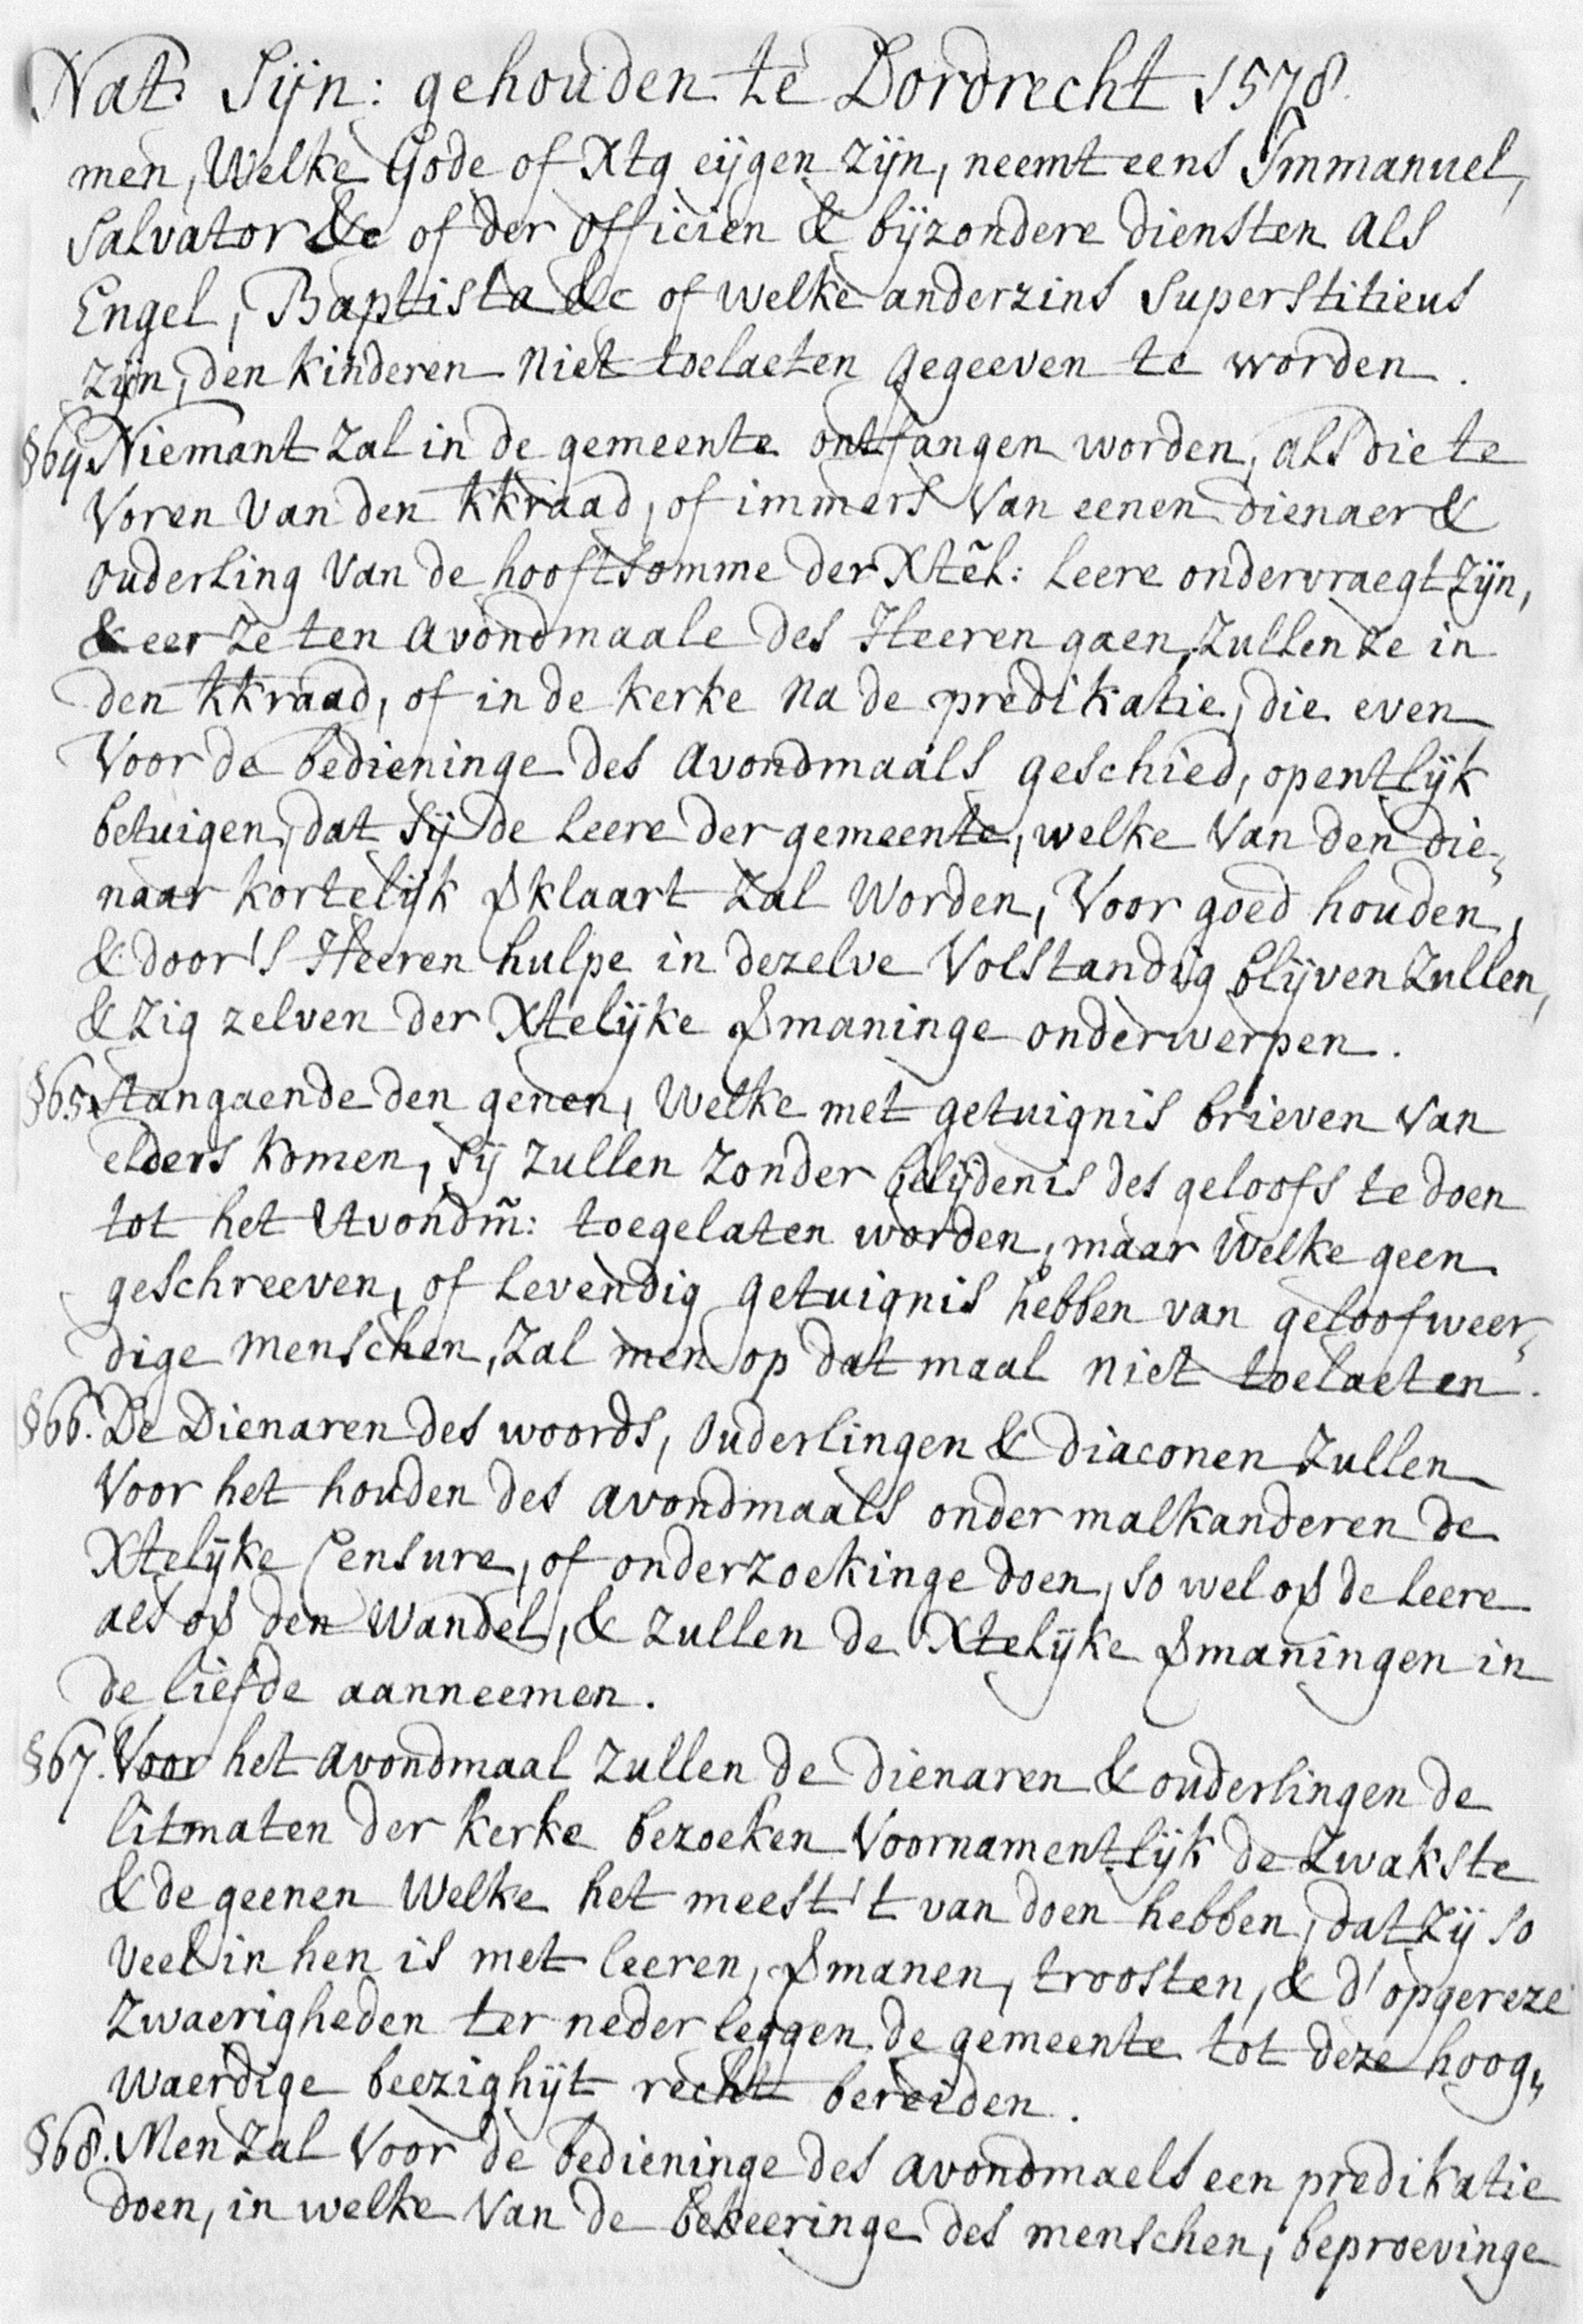 Nat: Sijn: gehouden te Dordrecht 1578.
men, Welke Gode of Xtq eijgen zijn, neemt eens Immanuel,
Salvator &c of der Officien & bijzondere diensten als
Engel, Baptista &c of welke anderzins superstitieus
zijn, den kinderen niet toelaeten gegeeven te worden.
§64. Niemant zal in de gemeente ontfangen worden, als die te
Voren van den kkraad, of immers van eenen dienaer &
ouderling van de hooftsomme der Xtẽl: leere ondervraegt zijn,
& eer ze ten avondmaale des Heeren gaen, zullen ze in
den kkraad, of in de kerke na de predikatie, die even
Voor de bedieninge des avondmaals geschied, opentlijk
betuigen, dat sij de leere der gemeente, welke van den die„
naar kortelijk ꝟklaart zal worden, Voor goed houden,
& door 's Heeren hulpe in dezelve Volstandig blijven zullen,
& zig zelven der Xtelijke ꝟmaninge onderwerpen.
§65. Aangaende den genen, Welke met getuignis brieven van
elders komen, sij zullen zonder belijdenis des geloofs te doen
tot het Avondm̃: toegelaten worden, maar welke geen
geschreeven, of levendig getuignis hebben van geloofweer„
dige menschen, zal men op dat maal niet toelaeten.
§66. De Dienaren des woords, Ouderlingen & diaconen zullen
Voor het houden des avondmaals onder malkanderen de
Xtelijke Censure, of onderzoekinge doen, so wel op de leere
als op den Wandel, & zullen de Xtelijke ꝟmaningen in
de liefde aanneemen.
§67. Voor het avondmaal zullen de dienaren & ouderlingen de
litmaten der kerke bezoeken Voornamentlijk de zwakste
& de geenen Welke het meest 't van doen hebben, dat zij so
veel in hen is met leeren, ꝟmanen, troosten, & d'opgereze
zwaerigheden ter neder leggen de gemeente tot deze hoog„
waerdige beezighijt recht bereiden.
§68. Men zal Voor de bedieninge des avondmaels een predikatie
doen, in welke Van de bekeeringe des menschen, beproevinge